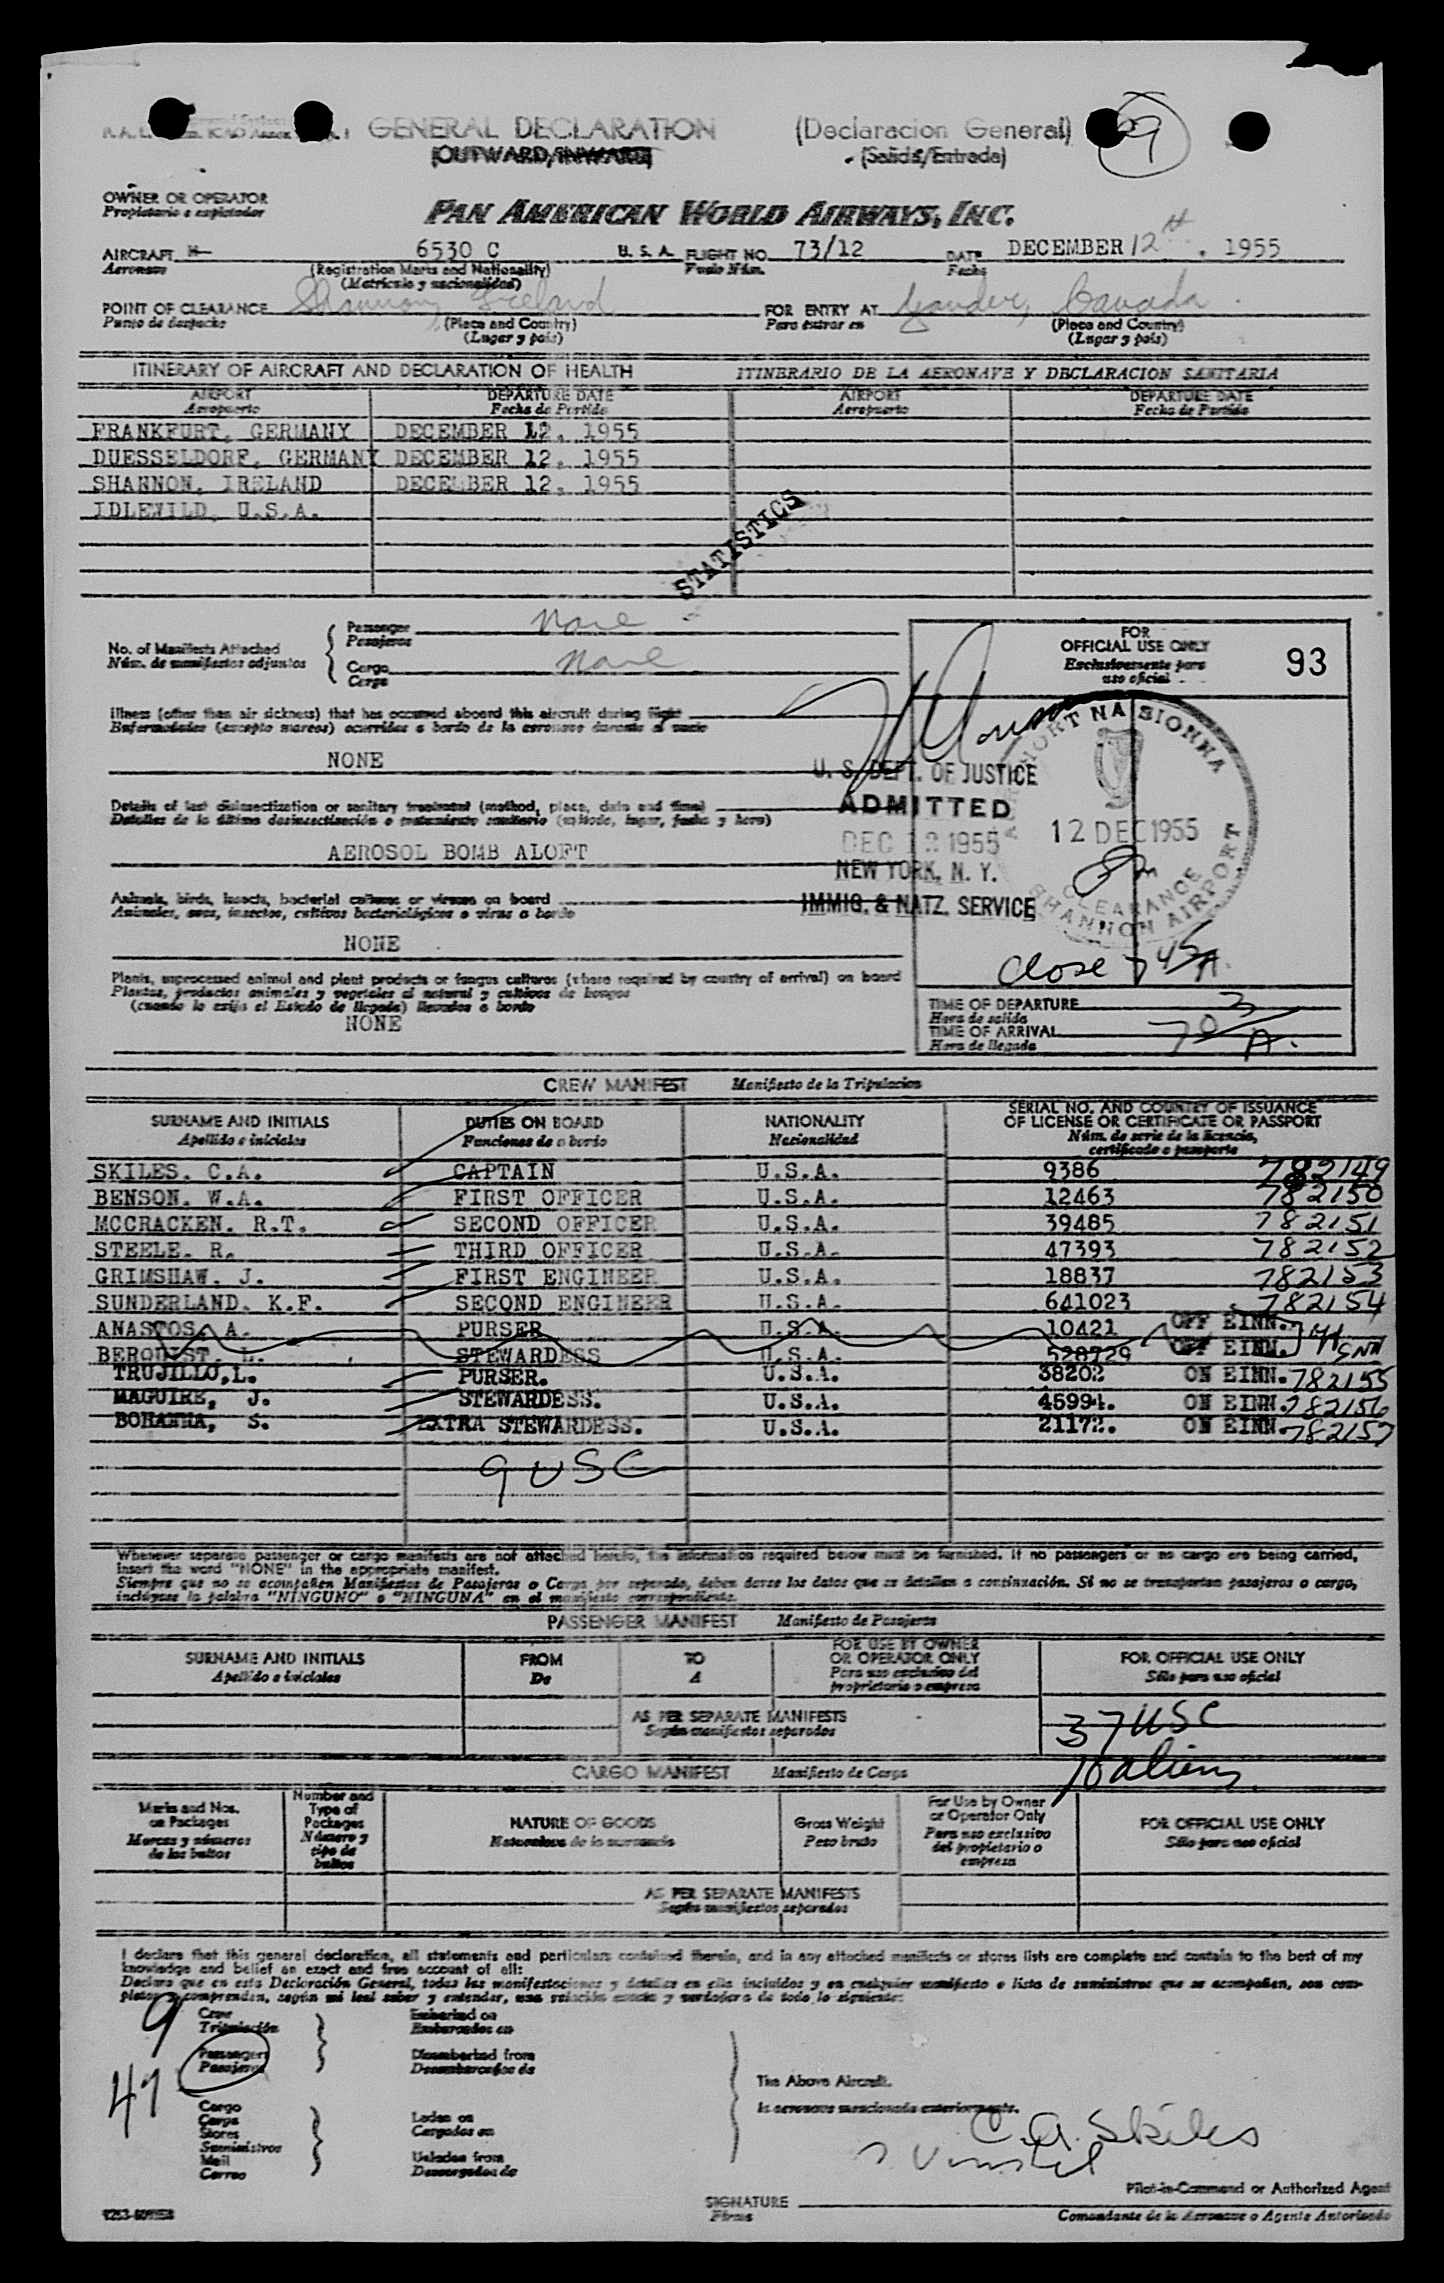 GENERAL DECLARATION (Declaracion General) 29
(OUTWARD/INWARD) (Salida/Entrada)
OWNER OR OPERATOR
Propietario o explotador
PAN AMERICAN WORLD AIRWAYS, INC.
AIRCRAFT N- 6530 C U. S. A. FLIGHT NO. 73/12 DATE DECEMBER 12th, 1955
Aeronave (Registration Marks and Nationality) Vuelo Núm. Fecha
(Matrícula y nacionalidad)
POINT OF CLEARANCE Shannon, Ireland FOR ENTRY AT Gander, Canada.
Punto de despacho (Place and Country) Para entrar en (Place and Country)
(Lugar y país) (Lugar y país)
ITINERARY OF AIRCRAFT AND DECLARATION OF HEALTH ITINERARIO DE LA AERONAVE Y DECLARACION SANITARIA
AIRPORT DEPARTURE DATE AIRPORT DEPARTURE DATE
Aeropuerto Fecha de Partida Aeropuerto Fecha de Partida
FRANKFURT, GERMANY DECEMBER 12, 1955
DUESSELDORF, GERMANY DECEMBER 12, 1955
SHANNON, IRELAND DECEMBER 12, 1955
IDLEWILD, U.S.A.
STATISTICS
No. of Manifests Attached
Núm. de manifiestos adjuntos
Passenger None
Pasajeros
Cargo None
Carga
FOR
OFFICIAL USE ONLY
Exclusivamente para
uso oficial
93
Illness (other than air sickness) that has occurred aboard this aircraft during flight
Enfermedades (excepto mareos) ocurridas a bordo de la aeronave durante el vuelo
NONE
Details of last disinsectization or sanitary treatment (method, place, date and time)
Detalles de la última desinsectización o tratamiento sanitario (método, lugar, fecha y hora)
AEROSOL BOMB ALOFT
Animals, birds, insects, bacterial cultures or viruses on board
Animales, aves, insectos, cultivos bacteriológicos o virus a bordo
NONE
Plants, unprocessed animal and plant products or fungus cultures (where required by country of arrival) on board
Plantas, productos animales y vegetales al natural y cultivos de hongos
(cuando lo exija el Estado de llegada) llevados a bordo
NONE
U. S. DEPT. OF JUSTICE
ADMITTED
DEC 12 1955
NEW YORK, N. Y.
IMMIG. & NATZ. SERVICE
12 DEC 1955
CLEARANCE
SHANNON AIRPORT
Close 7 45/A.
TIME OF DEPARTURE
Hora de salida
TIME OF ARRIVAL 7 03/A.
Hora de llegada
CREW MANIFEST Manifiesto de la Tripulacion
SURNAME AND INITIALS DUTIES ON BOARD NATIONALITY SERIAL NO. AND COUNTRY OF ISSUANCE
OF LICENSE OR CERTIFICATE OR PASSPORT
Apellido e iniciales Funciones de a bordo Nacionalidad Núm. de serie de la licencia,
certificado o pasaporte
SKILES. C.A. CAPTAIN U.S.A. 9386 782149
BENSON. W.A. FIRST OFFICER U.S.A. 12463 782150
MCCRACKEN. R.T. SECOND OFFICER U.S.A. 39485 782151
STEELE. R. THIRD OFFICER U.S.A. 47393 782152
GRIMSHAW. J. FIRST ENGINEER U.S.A. 18837 782153
SUNDERLAND. K.F. SECOND ENGINEER U.S.A. 641023 782154
ANASTOS. A. PURSER U.S.A. 10421 OFF EINN.
BERQUIST. L. STEWARDESS U.S.A. 528729 OFF EINN.
TRUJILLO,L. PURSER. U.S.A. 38202 ON EINN. 782155
MAGUIRE, J. STEWARDESS. U.S.A. 45994. ON EINN. 782156
BOHANNA, S. EXTRA STEWARDESS. U.S.A. 21172. ON EINN. 782157
9 USC
Whenever separate passenger or cargo manifests are not attached hereto, the information required below must be furnished. If no passengers or no cargo are being carried,
insert the word "NONE" in the appropriate manifest.
Siempre que no se acompañen Manifiestos de Pasajeros o Carga por separado, deben darse los datos que se detallan a continuación. Si no se transportan pasajeros o cargo,
inclúyase la palabra "NINGUNO" o "NINGUNA" en el manifiesto correspondiente.
PASSENGER MANIFEST Manifiesto de Pasajeros
SURNAME AND INITIALS FROM TO FOR USE BY OWNER
OR OPERATOR ONLY FOR OFFICIAL USE ONLY
Apellido e iniciales De A Para uso exclusivo del
propietario o empresa Sólo para uso oficial
AS PER SEPARATE MANIFESTS
Según manifiestos separados
37 USC
10 aliens
CARGO MANIFEST Manifiesto de Carga
Marks and Nos.
on Packages
Marcas y números
de los bultos
Number and
Type of
Packages
Número y
tipo de
bultos
NATURE OF GOODS
Naturaleza de la mercancía
Gross Weight
Peso bruto
For Use by Owner
or Operator Only
Para uso exclusivo
del propietario o
empresa
FOR OFFICIAL USE ONLY
Sólo para uso oficial
AS PER SEPARATE MANIFESTS
Según manifiestos separados
I declare that this general declaration, all statements and particulars contained therein, and in any attached manifests or stores lists are complete and contain to the best of my
knowledge and belief an exact and true account of all:
Declaro que en esta Declaración General, todas las manifestaciones y detalles en ella incluidos y en cualquier manifiesto o lista de suministros que se acompañen, son com-
pletos y comprenden, según mi leal saber y entender, una relación exacta y verdadera de todo lo siguiente:
9 Crew Embarked on
Tripulación Embarcados en
47 Passengers Disembarked from
Pasajeros Desembarcados de
The Above Aircraft.
La aeronave mencionada anteriormente.
Cargo Laden on
Carga Cargados en
Stores
Suministros
Mail Unladen from
Correo Descargados de
C. A. Skiles
Pilot-in-Command or Authorized Agent
SIGNATURE
Firma Comandante de la Aeronave o Agente Autorizado